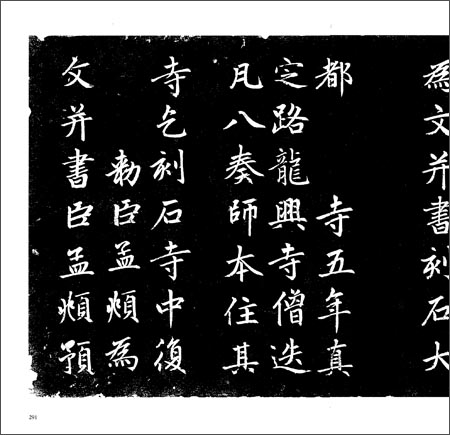 為文并書刻石大
都
寺五年真
定路龍興寺僧迭
凡八奏師本住其
寺乞刻石寺中復
勑臣孟頫為
文并書臣孟頫預
291